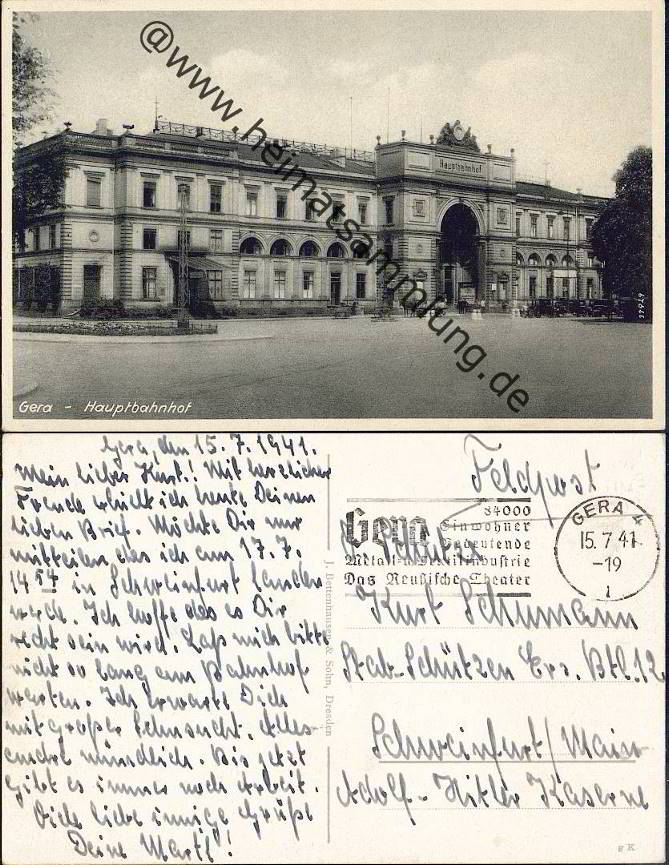 @www.heimatsammlung.de
Hauptbahnhof
Gera - Hauptbahnhof
Gera, den 15.7.1941.
Mein lieber Kurt! Mit herzlicher
Freude erhielt ich heute Deinen
lieben Brief. Möchte Dir nur
mitteilen, das ich am 17.7.
14 54 in Schweinfurt landen
werde. Ich hoffe das es Dir
recht sein wird. Laß mich bitte
nicht so lang am Bahnhof
warten. Ich erwarte Dich
mit großer Sehnsucht. Alles
andere mündlich. Bis jetzt
gibt es immer noch Arbeit.
Viele liebe innige Grüße
Deine
J. Bettenhausen & Sohn, Dresden
Feldpost
84000
Gera Einwohner
Bedeutende
Metall- u. Textilindustrie
Das Reußische Theater
GERA
15.7.41
-19
1
Schütze
Kurt Schumann
Stab-Schützen Ers. Btl. 12
Schweinfurt/Main
Adolf-Hitler Kaserne